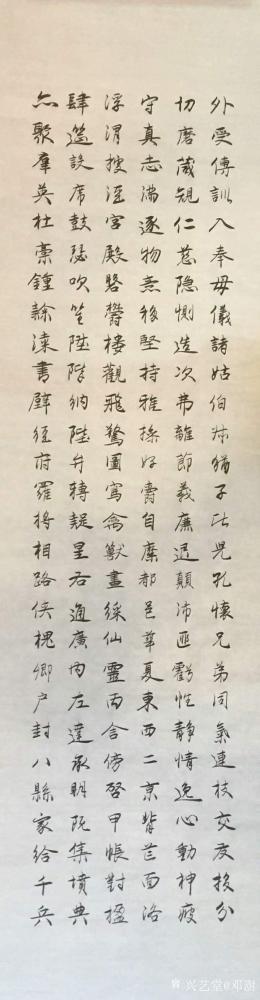 外受傅訓入奉母儀諸姑伯叔猶子比兒孔懷兄弟同氣連枝交友投分
切磨箴規仁慈隱惻造次弗離節義廉退顛沛匪虧性靜情逸心動神疲
守真志滿逐物意移堅持雅操好爵自縻都邑華夏東西二京背芒面洛
浮渭據涇宮殿磐鬱樓觀飛驚圖寫禽獸畫綵仙靈丙舍傍啓甲帳對楹
肆筵設席鼓瑟吹笙陞階納陛弁轉疑星右通廣內左達承明既集墳典
亦聚羣英杜稾鍾隸漆書壁經府羅將相路俠槐卿戶封八縣家給千兵
兴艺堂@邓澍